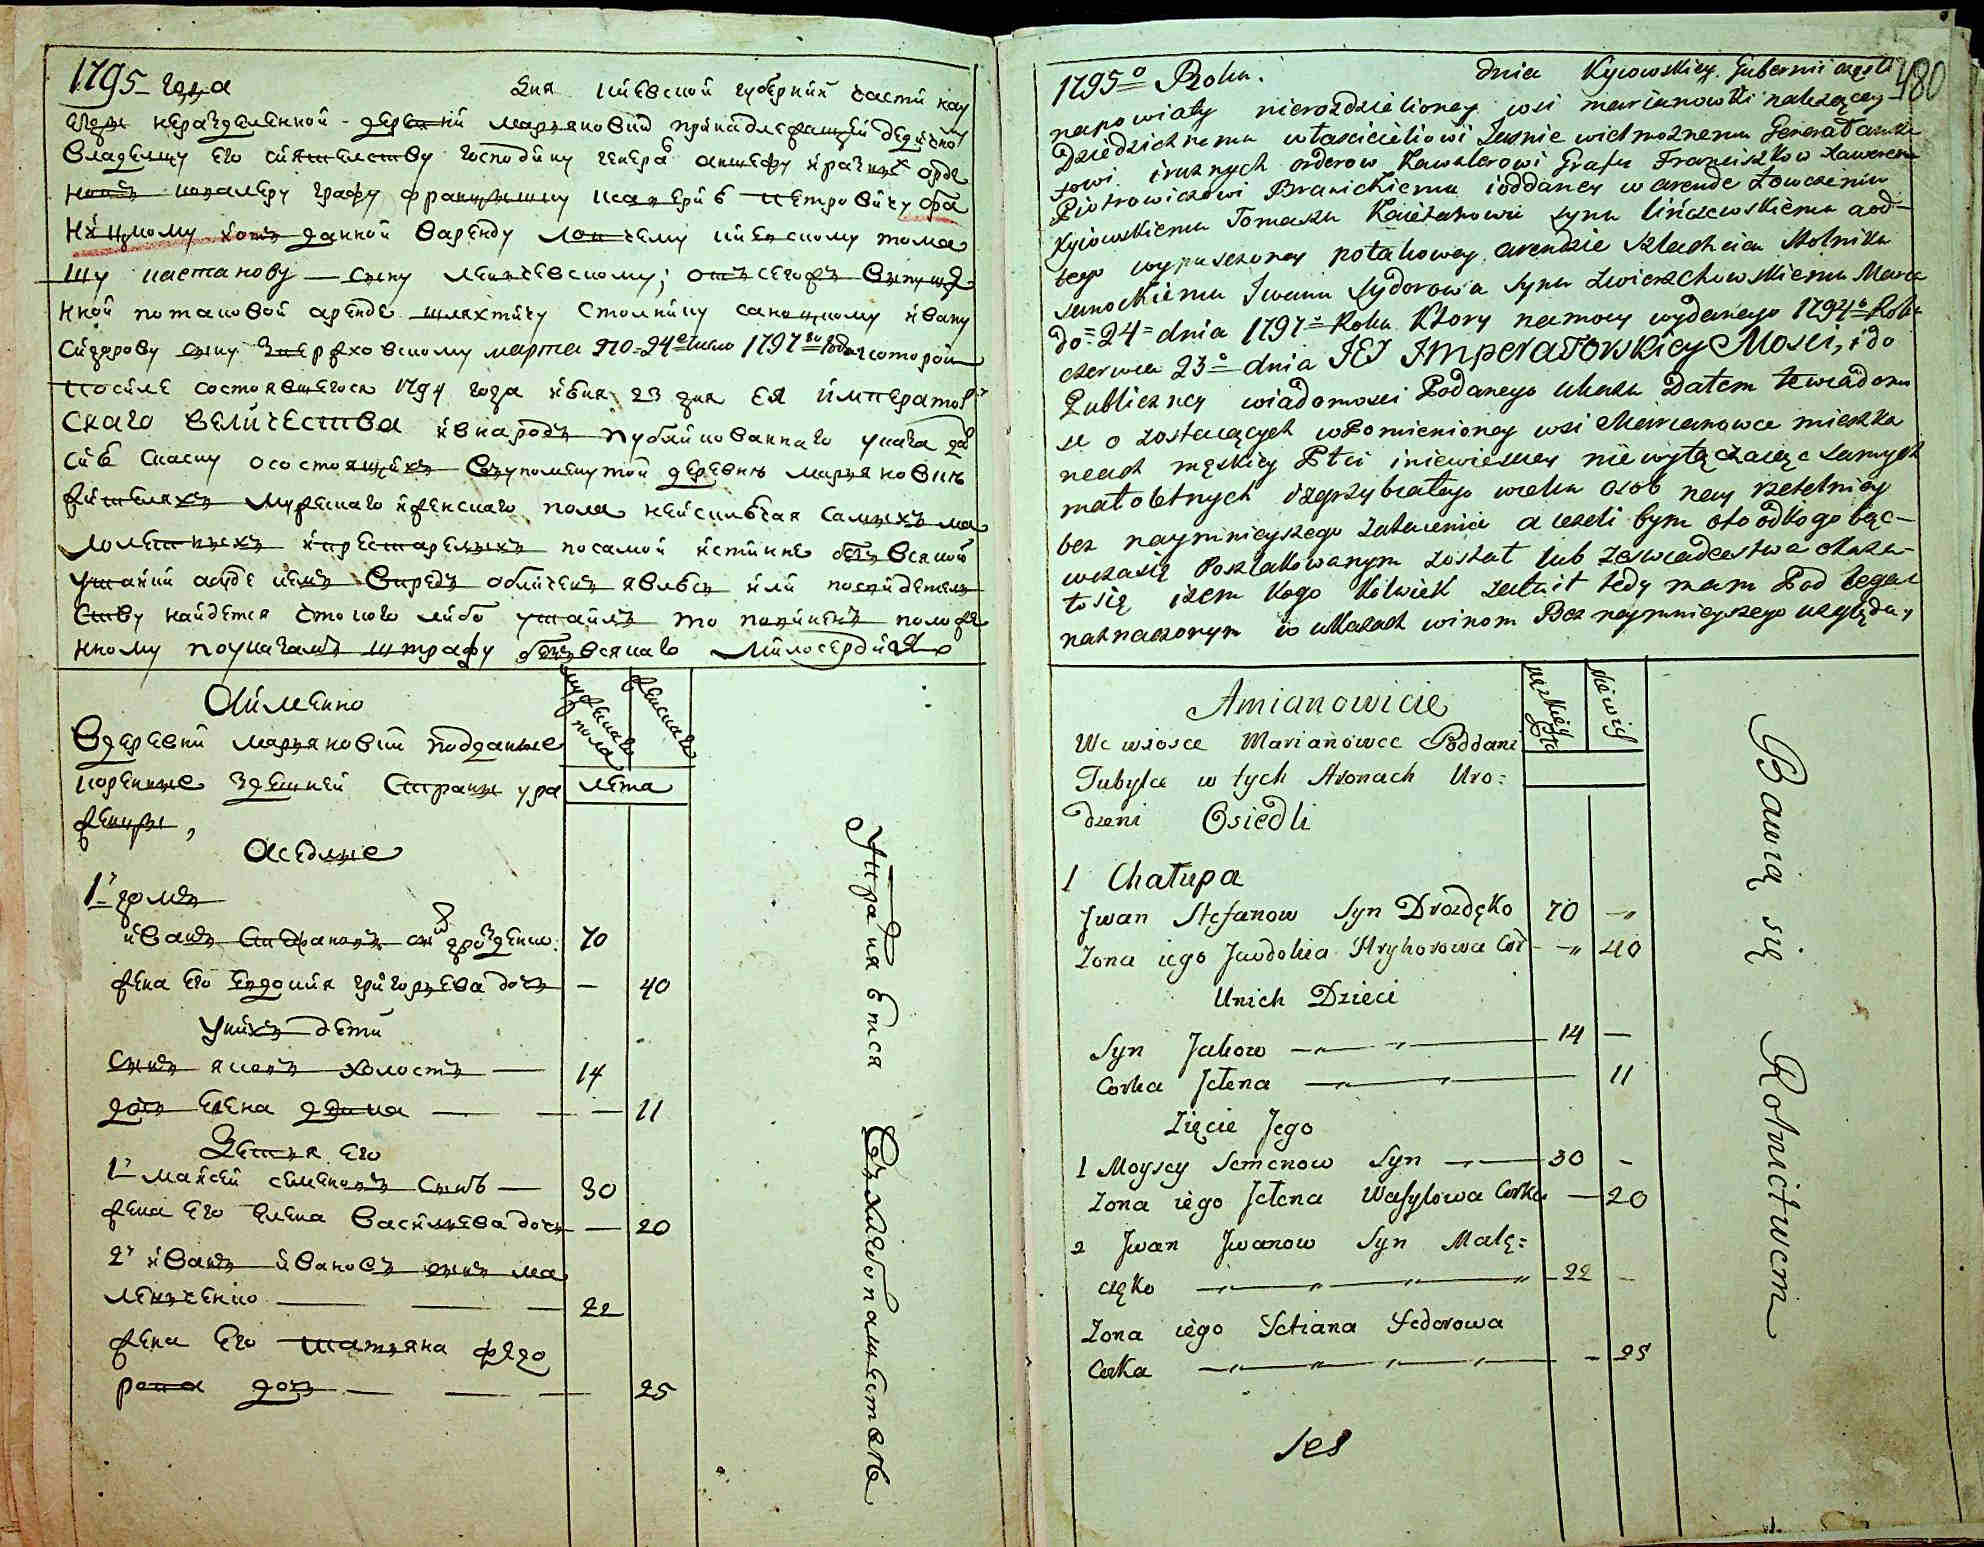 1795 года дня Киевской губернии части на у
езды неразделенной деревни Марьяновки принадлежащей дедичному
владелцу его сиятелству господину генералу аншефу и разных орде
новъ кавалеру графу Францышку Ксаверию Петровичу Бра
ницкому
данной варенду Ловчему Киевскому тома
шу каетанову сыну Ленчевскому; отъ сегожъ выпуще
нной потаковой аренде шляхтичу Столнику саноцкому ивану
Сидорову сыну Звержховскому марта по 24е число 1797го года которой
после состоявшегося 1794 года июня 23 дня ея императо
скаго величества и внародъ публикованнаго указа даю
сию сказку о состоящихъ в упомянутой деревне марьяновке
жителяхъ мужескаго и женскаго пола не исключая самыхъ ма
лолетныхъ и престарелыхъ по самой истинне безъ всякой
утайки а буде кемъ впредь обличенъ явлюсь или по свидетел
ству найдется что кого либо утаилъ то повиненъ положе
нному по указамъ штрафу безъ всякаго милосердия
А имянно
мужеска пола
женска
В деревни марьяновки подданые
коренные здешней страны уро
женцы,
лета
Аседлые
1й домъ
иванъ Стефановъ сы дрозденко 70
жена его Евдокия григорьева дочь — 40
У нихъ дети
Сынъ яковъ холостъ — 14
дочь Елена девка — 11
Зетья его
1й майсей семеновъ сынъ — 30
жена его елена васильева дочь — 20
2й иванъ ивановъ сынъ ма
ленченко — 22
жена его татьяна федо
рова дочь — 25
Упражняются Въ хлебопашестве
480
1795o Roku. dnia Kyiowskiey Gubernii części
napowiaty nierozdzieloney wsi marianowki należącey
Dziedzicznemu właścicielowi Jasnie wielmożnemu Generał
iruznych orderow Kawalerowi Grafu Franciszkow Xawerem
Piotrowiczowi Branickiemu ioddaney w arende Łowczemu
Kyiowskiemu Tomaszu Kaietanowu Synu Linczewskiemu aod
tego wypuszczoney potakowey arendzie szlachcicu Stolniku
sanockiemu Iwanu Sydorowa Synu Zwierzchowskiemu Marca
do = 24 = dnia 1797o Roku Ktory namocy wydanego 1794o Roku
czerwca 23o dnia JEJ IMPERATORSKIEY Mosci, i do
Publiczney wiadomosci Podanego ukazu Datem te wiadoms
si o zostaiących wpomienioney wsi Marianowce mieszka
ncach męskiey Płci iniewiesciey niewyłączaiąc samych
małoletnych izgrzybiałego wieku osob nay rzetelniey
bez naymnieyszego zataienia a ieżeli bym oto odkogo bąc
wczasie Poszlakowanym został lub zeswiadectwa okaza
łosię iżem kogo Kolwiek zataił tedy mam Pod legac
naznaczonym w ukazach winom Bez naymnieyszego względu,
Amianowicie
męzkiey Płci
niewiey
We wiosce Marianowce Poddani
Tubylce w tych stronach Uro:
dzeni Osiedli
1 Chałupa
Jwan Stefanow Syn Drozdęko 70 —
Zona iego Jawdokia Hryhorowa Cór — 40
Unich Dzieci
Syn Jakow — 14 —
Corka Jełena — 11
Zięcie Jego
1 Moysey Semenow Syn — 30 —
Zona iego Jełena Wasylowa Corka — 20
2 Jwan Jwanow Syn Malę:
częko — 22 —
Zona iego Tetiana Fedorowa
Corka — 25
Bawią się Rolnictwem